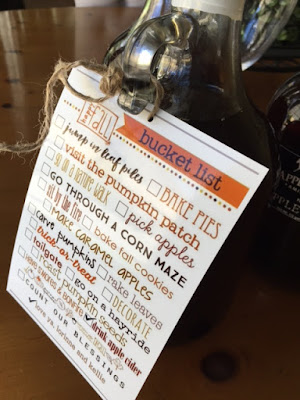 fall
bucket list
jump in leaf piles
BAKE PIES
visit the pumpkin patch
go on a nature walk
pick apples
GO THROUGH A CORN MAZE
sit by the fire
bake fall cookies
make caramel apples
carve pumpkins
rake leaves
trick-or-treat
DECORATE
tailgate
go on a hayride
roast pumpkin seeds
drink apple cider
COUNT OUR BLESSINGS
love ya,
and kellie